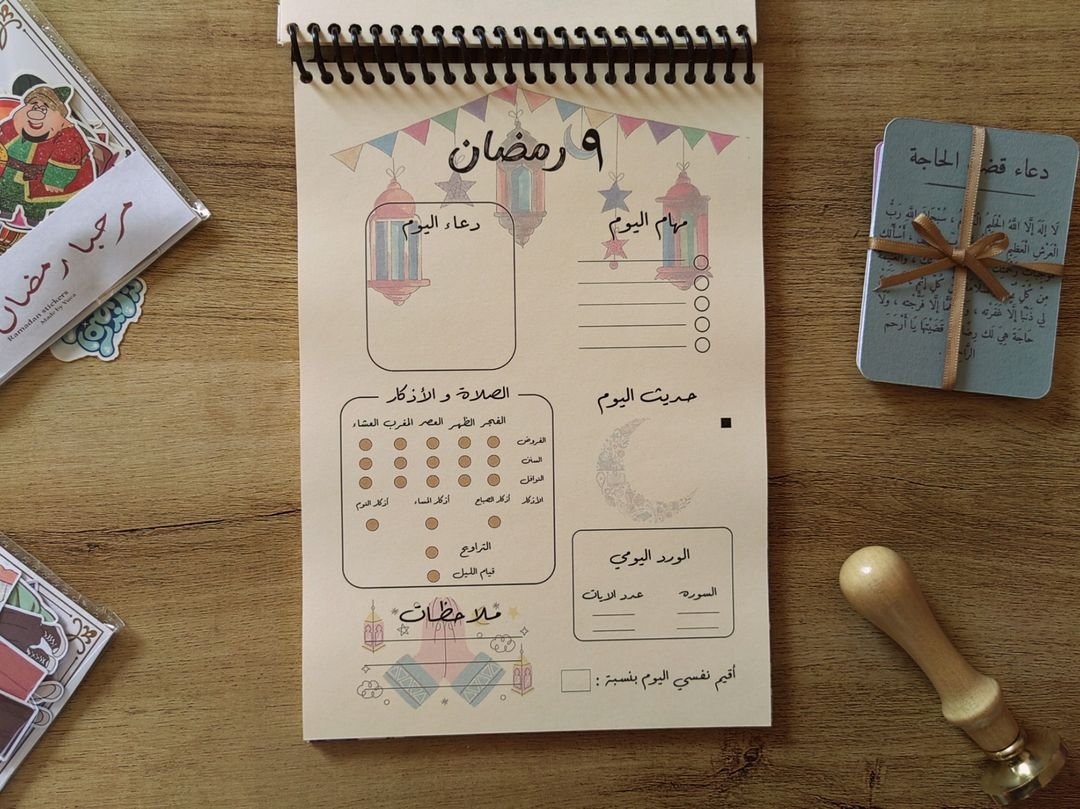 ٩ رمضان
مهام اليوم
دعاء اليوم
حديث اليوم
الصلاة و الأذكار
الفجر الظهر العصر المغرب العشاء
الفروض
السنن
النوافل
الأذكار أذكار الصباح أذكار المساء أذكار النوم
التراويح
قيام الليل
الورد اليومي
السورة عدد الايات
ملاحظات
أقيم نفسي اليوم بنسبة :
مرحبا رمضان
Ramadan stickers
Made by Yuca
دعاء قضاء الحاجة
لَا إِلَهَ إِلَّا اللَّهُ الْحَلِيمُ ، سُبْحَانَ اللَّهِ رَبُّ
الْعَرْشِ الْعَظِيمِ ، أَسْأَلُكَ
رَحْمَتِكَ
مِنْ كُلِّ مِنْ كُلِّ
لِي ذَنْبًا إِلَّا غَفَرْتَهُ ، إِلَّا فَرَّجْتَهُ ، وَلَا
حَاجَةً هِيَ لَكَ قَضَيْتَهَا يَا أَرْحَمَ